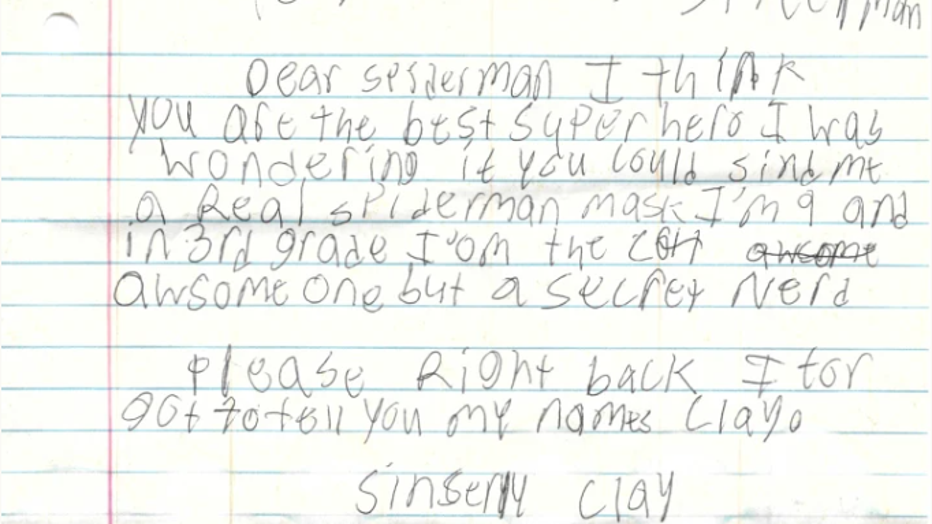 Dear spiderman I think
you are the best superhero I was
wondering if you could sind me
a Real spiderman mask I'm 9 and
in 3rd grade I'om the
awsome one but a secret Nerd
please Right back I for
got to tell you my names Clay.
sinserly Clay